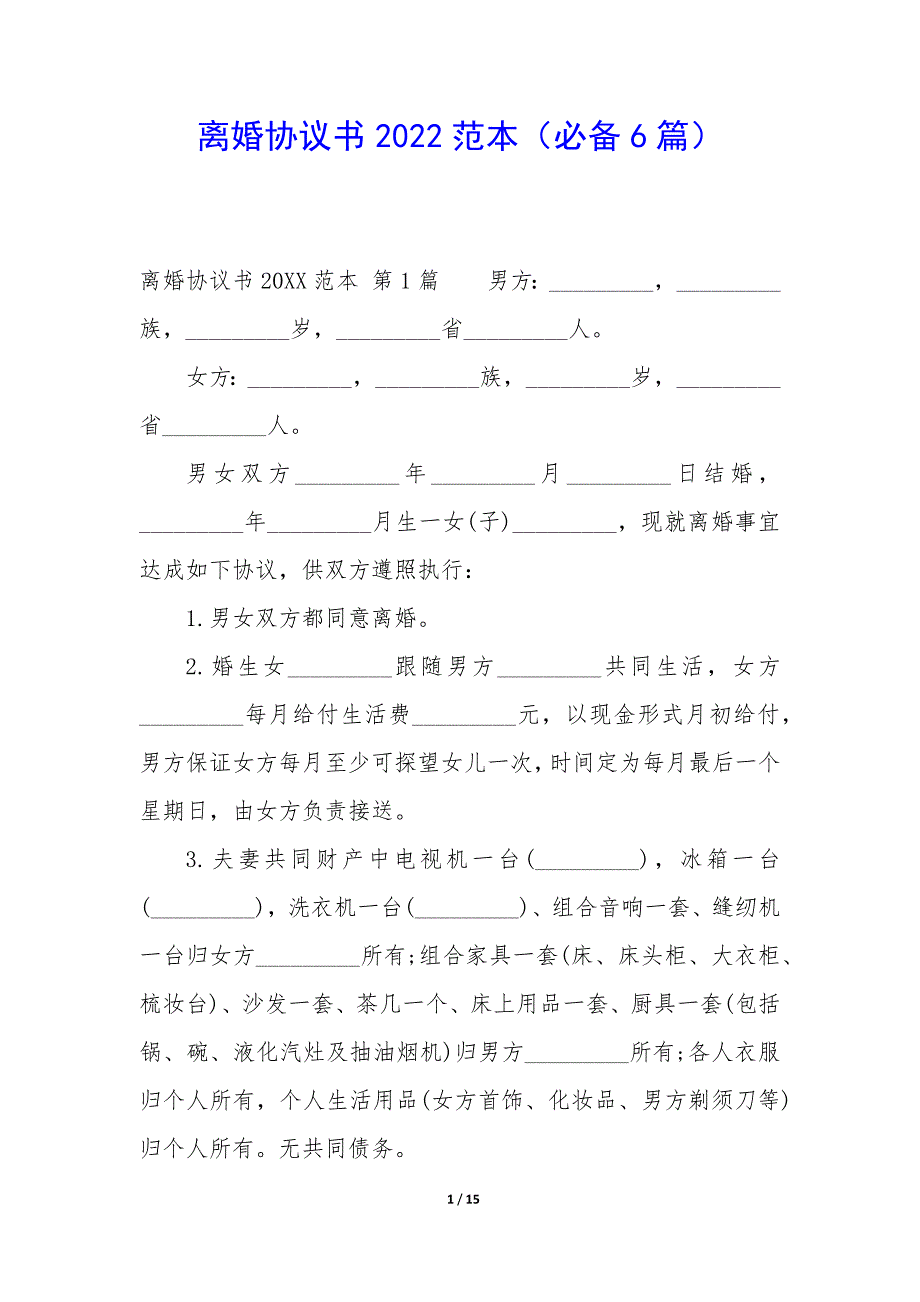 离婚协议书2022范本（必备6篇）
离婚协议书20XX范本 第1篇　　男方：_________，_________
族，_________岁，_________省_________人。
女方：_________，_________族，_________岁，_________
省_________人。
男女双方_________年_________月_________日结婚，
_________年_________月生一女(子)_________，现就离婚事宜
达成如下协议，供双方遵照执行：
1.男女双方都同意离婚。
2.婚生女_________跟随男方_________共同生活，女方
_________每月给付生活费_________元，以现金形式月初给付，
男方保证女方每月至少可探望女儿一次，时间定为每月最后一个
星期日，由女方负责接送。
3.夫妻共同财产中电视机一台(_________)，冰箱一台
(_________)，洗衣机一台(_________)、组合音响一套、缝纫机
一台归女方_________所有;组合家具一套(床、床头柜、大衣柜、
梳妆台)、沙发一套、茶几一个、床上用品一套、厨具一套(包括
锅、碗、液化汽灶及抽油烟机)归男方_________所有;各人衣服
归个人所有，个人生活用品(女方首饰、化妆品、男方剃须刀等)
归个人所有。无共同债务。
1 / 15